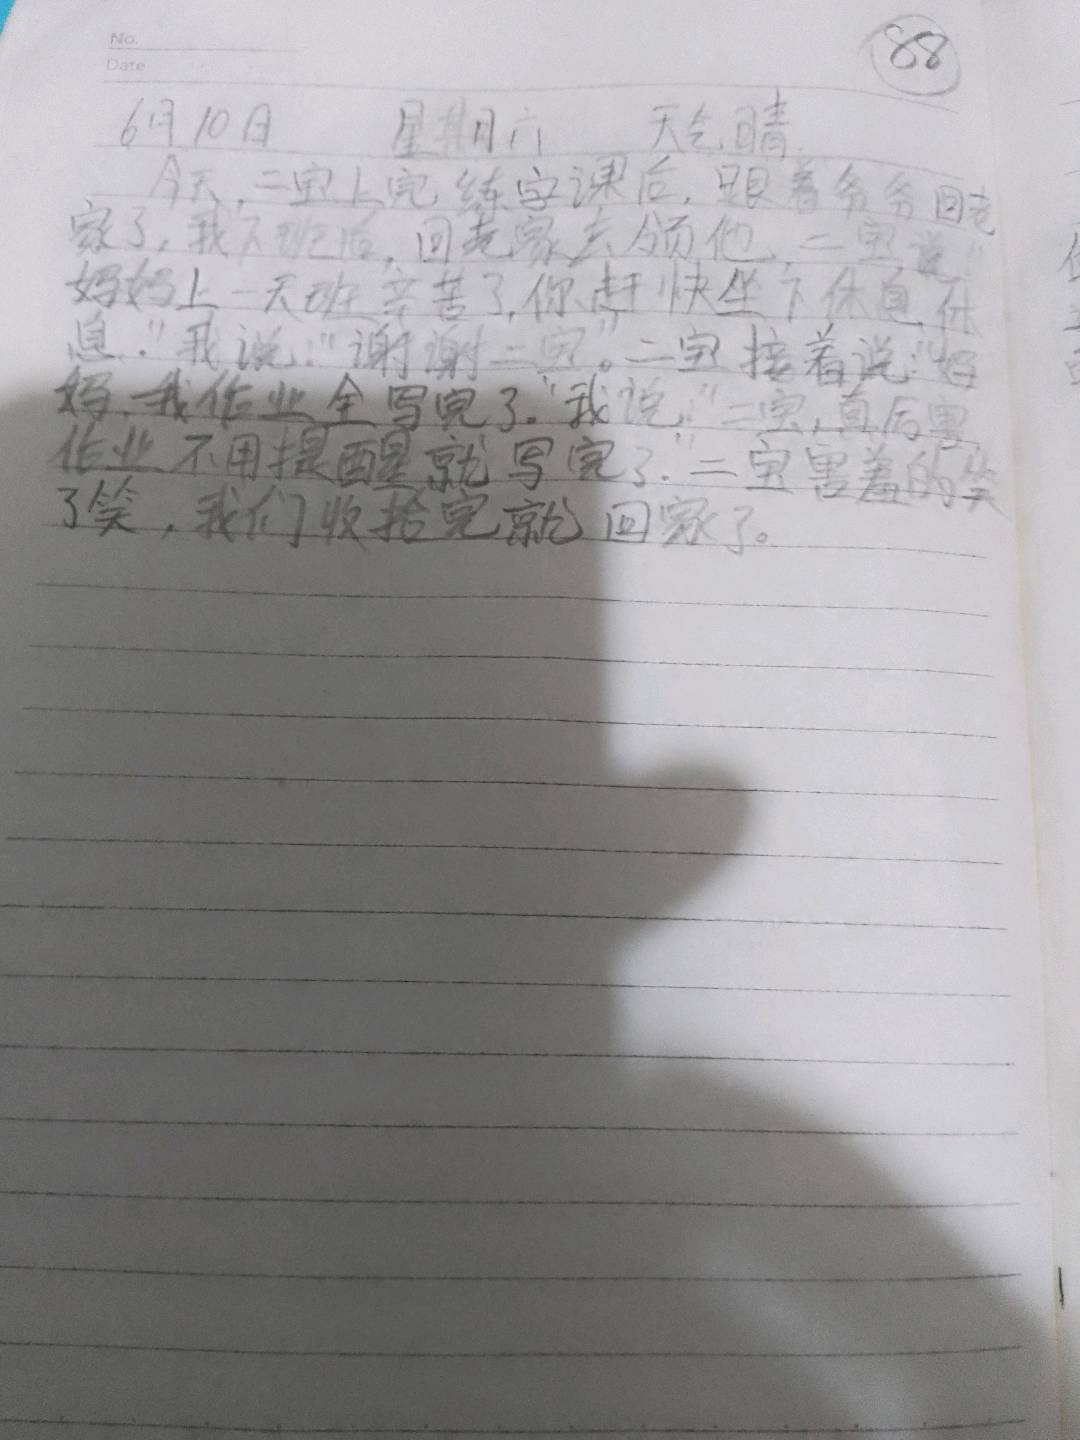 No.
Date
88
6月10日 星期六 天气晴
今天,二宝上完练字课后,跟着爷爷回老
家了,我下班后,回老家去领他,二宝说:"
妈妈上一天班辛苦了,你赶快坐下休息休
息."我说:"谢谢二宝"。二宝接着说:"妈
妈,我作业全写完了."我说:"二宝,真厉害
作业不用提醒就写完了."二宝害羞的笑
了笑,我们收拾完就回家了。